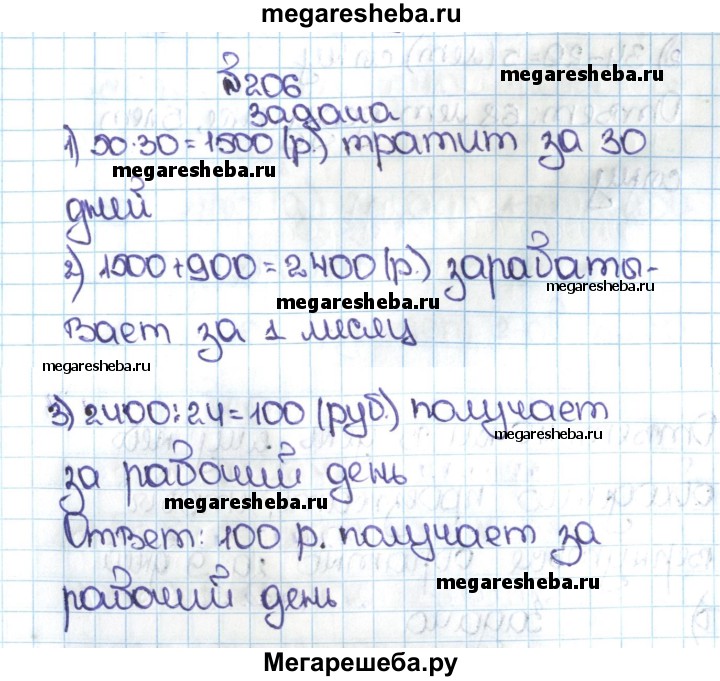 megaresheba.ru
№206
megaresheba.ru
задача
1) 50·30=1500 (р.) тратит за 30
megaresheba.ru
дней
2) 1500+900=2400 (р.) зарабаты-
megaresheba.ru
megaresheba.ru
вает за 1 месяц
megaresheba.ru
3) 2400:24=100 (руб.) получает
megaresheba.ru
за рабочий день
megaresheba.ru
Ответ: 100 р. получает за
megaresheba.ru
рабочий день
Мегарешеба.ру